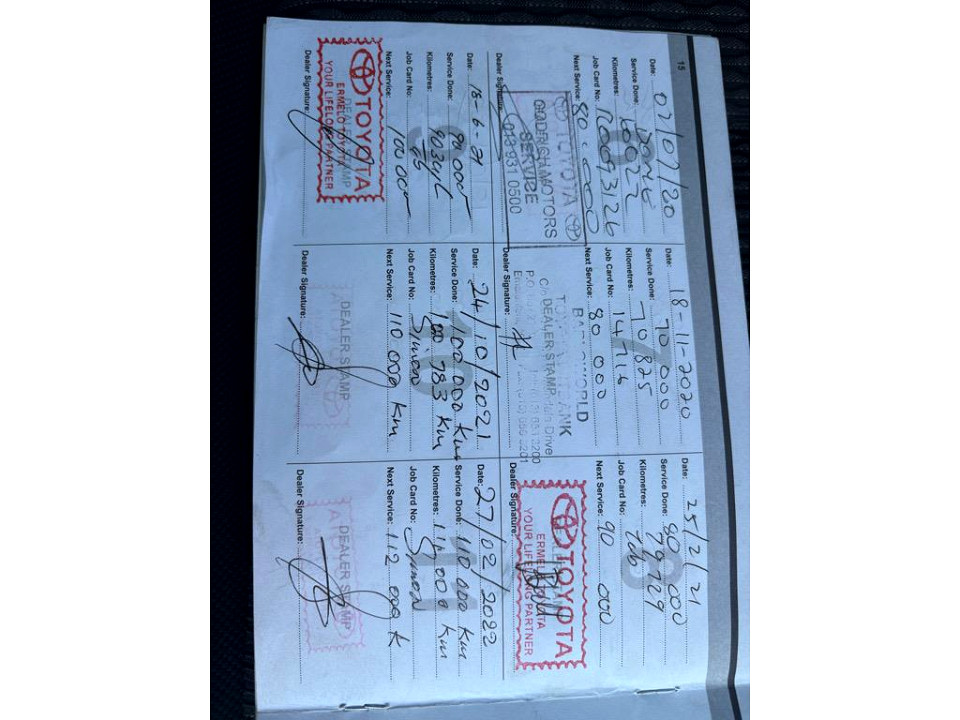 15
Date: 02/07/20
Service Done: 60000
Kilometres: 60022
Job Card No: R0093126
Next Service: 80.000
TOYOTA
MOTORS
SERVICE
013 931 0500
Dealer Signature:
Date: 18-11-2020
Service Done: 70 000
Kilometres: 70 825
Job Card No: 14714
Next Service: 80 000
DEALER STAMP
Dealer Signature:
Date: 25/2/21
Service Done: 80 000
Kilometres: 79729
Job Card No:
Next Service: 90 000
TOYOTA
ERMELO TOYOTA
YOUR LIFELONG PARTNER
Dealer Signature:
Date: 15-6-21
Service Done: 90 000
Kilometres:
Job Card No:
Next Service: 100 000
TOYOTA
DEALER STAMP
ERMELO TOYOTA
YOUR LIFELONG PARTNER
Dealer Signature:
10
Date: 24/10/2021
Service Done: 100 000 km
Kilometres: 100 783 km
Job Card No: Simon
Next Service: 110 000 km
DEALER STAMP
Dealer Signature:
11
Date: 27/02/2022
Service Done: 110 000 km
Kilometres: 111 000 km
Job Card No: Simon
Next Service: 112 000 K
DEALER STAMP
Dealer Signature: